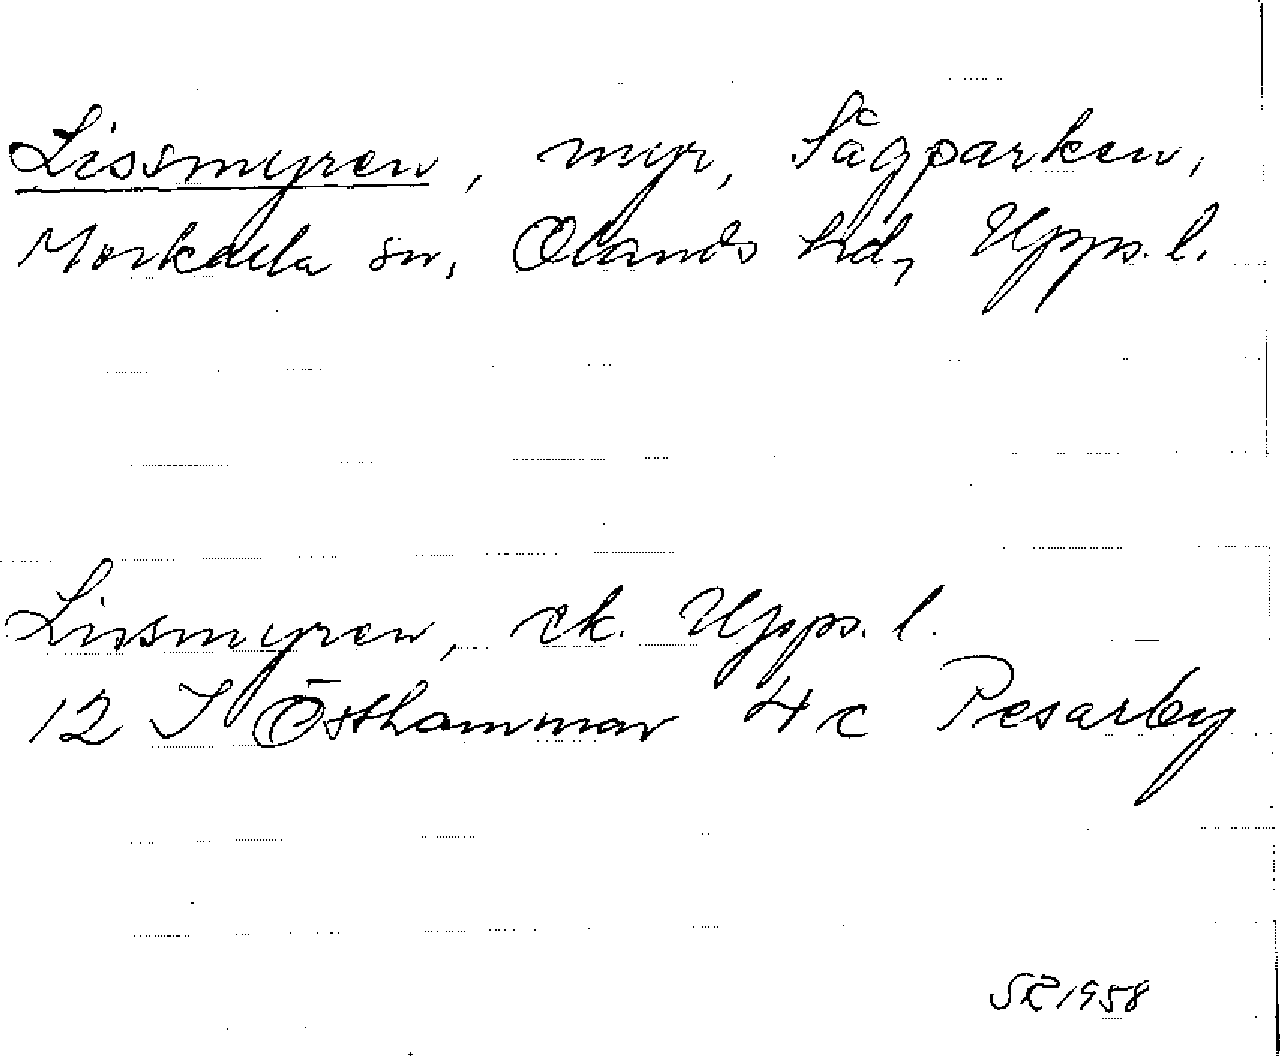 Lissmyren, myr, Sågparken,
Morkarla sn, Olands hd, Upps. l.
Lissmyren, ek. Upps. l.
12 I Östhammar 4 c Pesarby
SR 1958